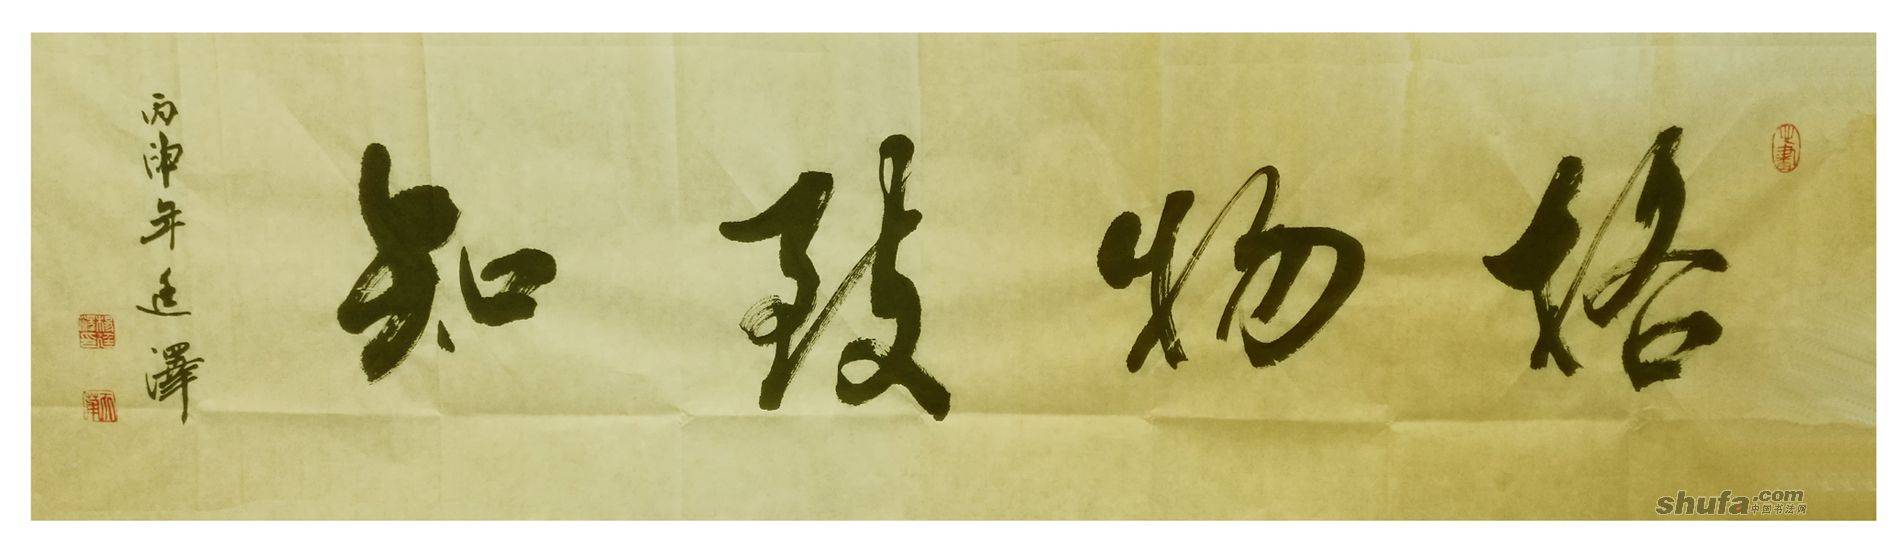 格物致知
丙申年廷澤
shufa.com
中国书法网